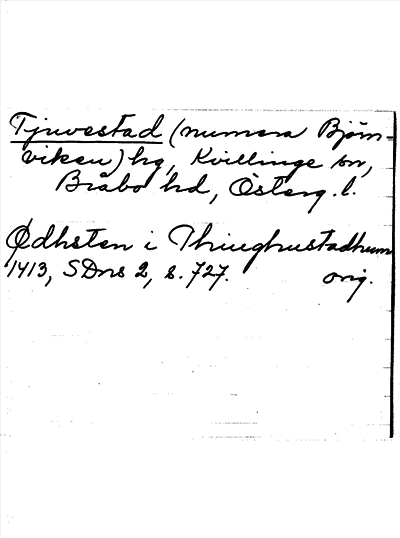 Tjuvestad (numera Björn-
viken) hg, Kvillinge sn,
Bråbo hd, Österg. l.
Ødhsten i Thiughustadhum
1413, SDns 2, s. 727. orig.